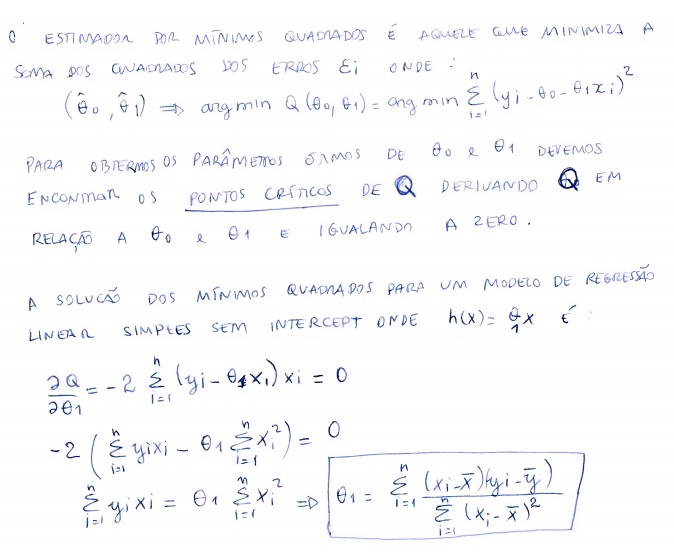 O ESTIMADOR POR MÍNIMOS QUADRADOS É AQUELE QUE MINIMIZA A
SOMA DOS QUADRADOS DOS ERROS εi ONDE :
(θ̂0, θ̂1) ⇒ arg min Q(θ0, θ1) = arg min Σ_{i=1}^{n} (yi - θ0 - θ1xi)²
PARA OBTERMOS OS PARÂMETROS ÓTIMOS DE θ0 e θ1 DEVEMOS
ENCONTRAR OS PONTOS CRÍTICOS DE Q DERIVANDO Q EM
RELAÇÃO A θ0 e θ1 E IGUALANDO A ZERO.
A SOLUCÃO DOS MÍNIMOS QUADRADOS PARA UM MODELO DE REGRESSÃO
LINEAR SIMPLES SEM INTERCEPT ONDE h(x) = θ1x É :
∂Q/∂θ1 = -2 Σ_{i=1}^{n} (yi - θ1xi) xi = 0
-2 (Σ_{i=1}^{n} yixi - θ1 Σ_{i=1}^{n} xi²) = 0
Σ_{i=1}^{n} yixi = θ1 Σ_{i=1}^{n} xi² ⇒ θ1 = Σ_{i=1}^{n} (xi - x̄)(yi - ȳ) / Σ_{i=1}^{n} (xi - x̄)²